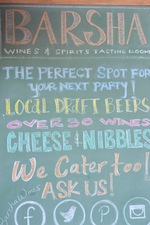 BARSHA
WINES & SPIRITS TASTING ROOM
THE PERFECT SPOT FOR
YOUR NEXT PARTY!
LOCAL DRAFT BEERS
OVER 30 WINES
CHEESE & NIBBLES
We Cater too!
ASK US!
BarshaWines